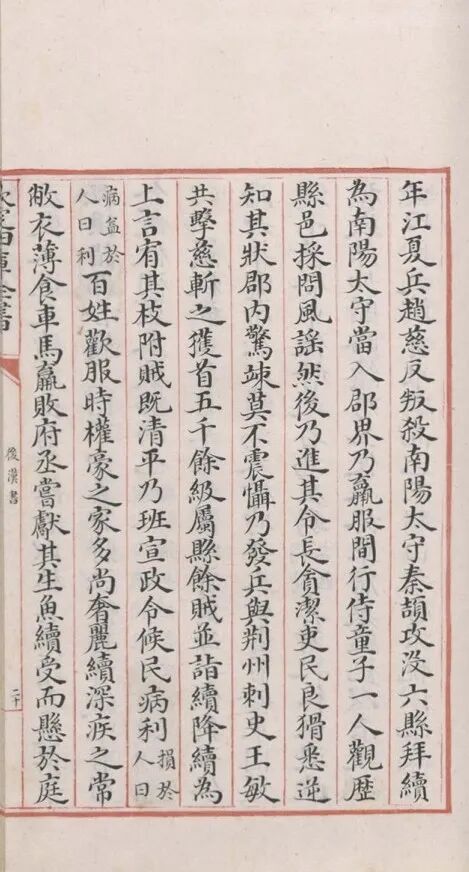 年江夏兵趙慈反叛殺南陽太守秦頡攻沒六縣拜續
為南陽太守當入郡界乃羸服間行侍童子一人觀歷
縣邑採問風謠然後乃進其令長貪潔吏民良猾悉逆
知其狀郡內驚竦莫不震懾乃發兵與荆州刺史王敏
共擊慈斬之獲首五千餘級屬縣餘賊並詣續降續為
上言宥其枝附賊既清平乃班宣政令候民病利損於人曰
病益於人曰利百姓歡服時權豪之家多尚奢麗續深疾之常
敝衣薄食車馬羸敗府丞嘗獻其生魚續受而懸於庭
欽定四庫全書
後漢書
二十